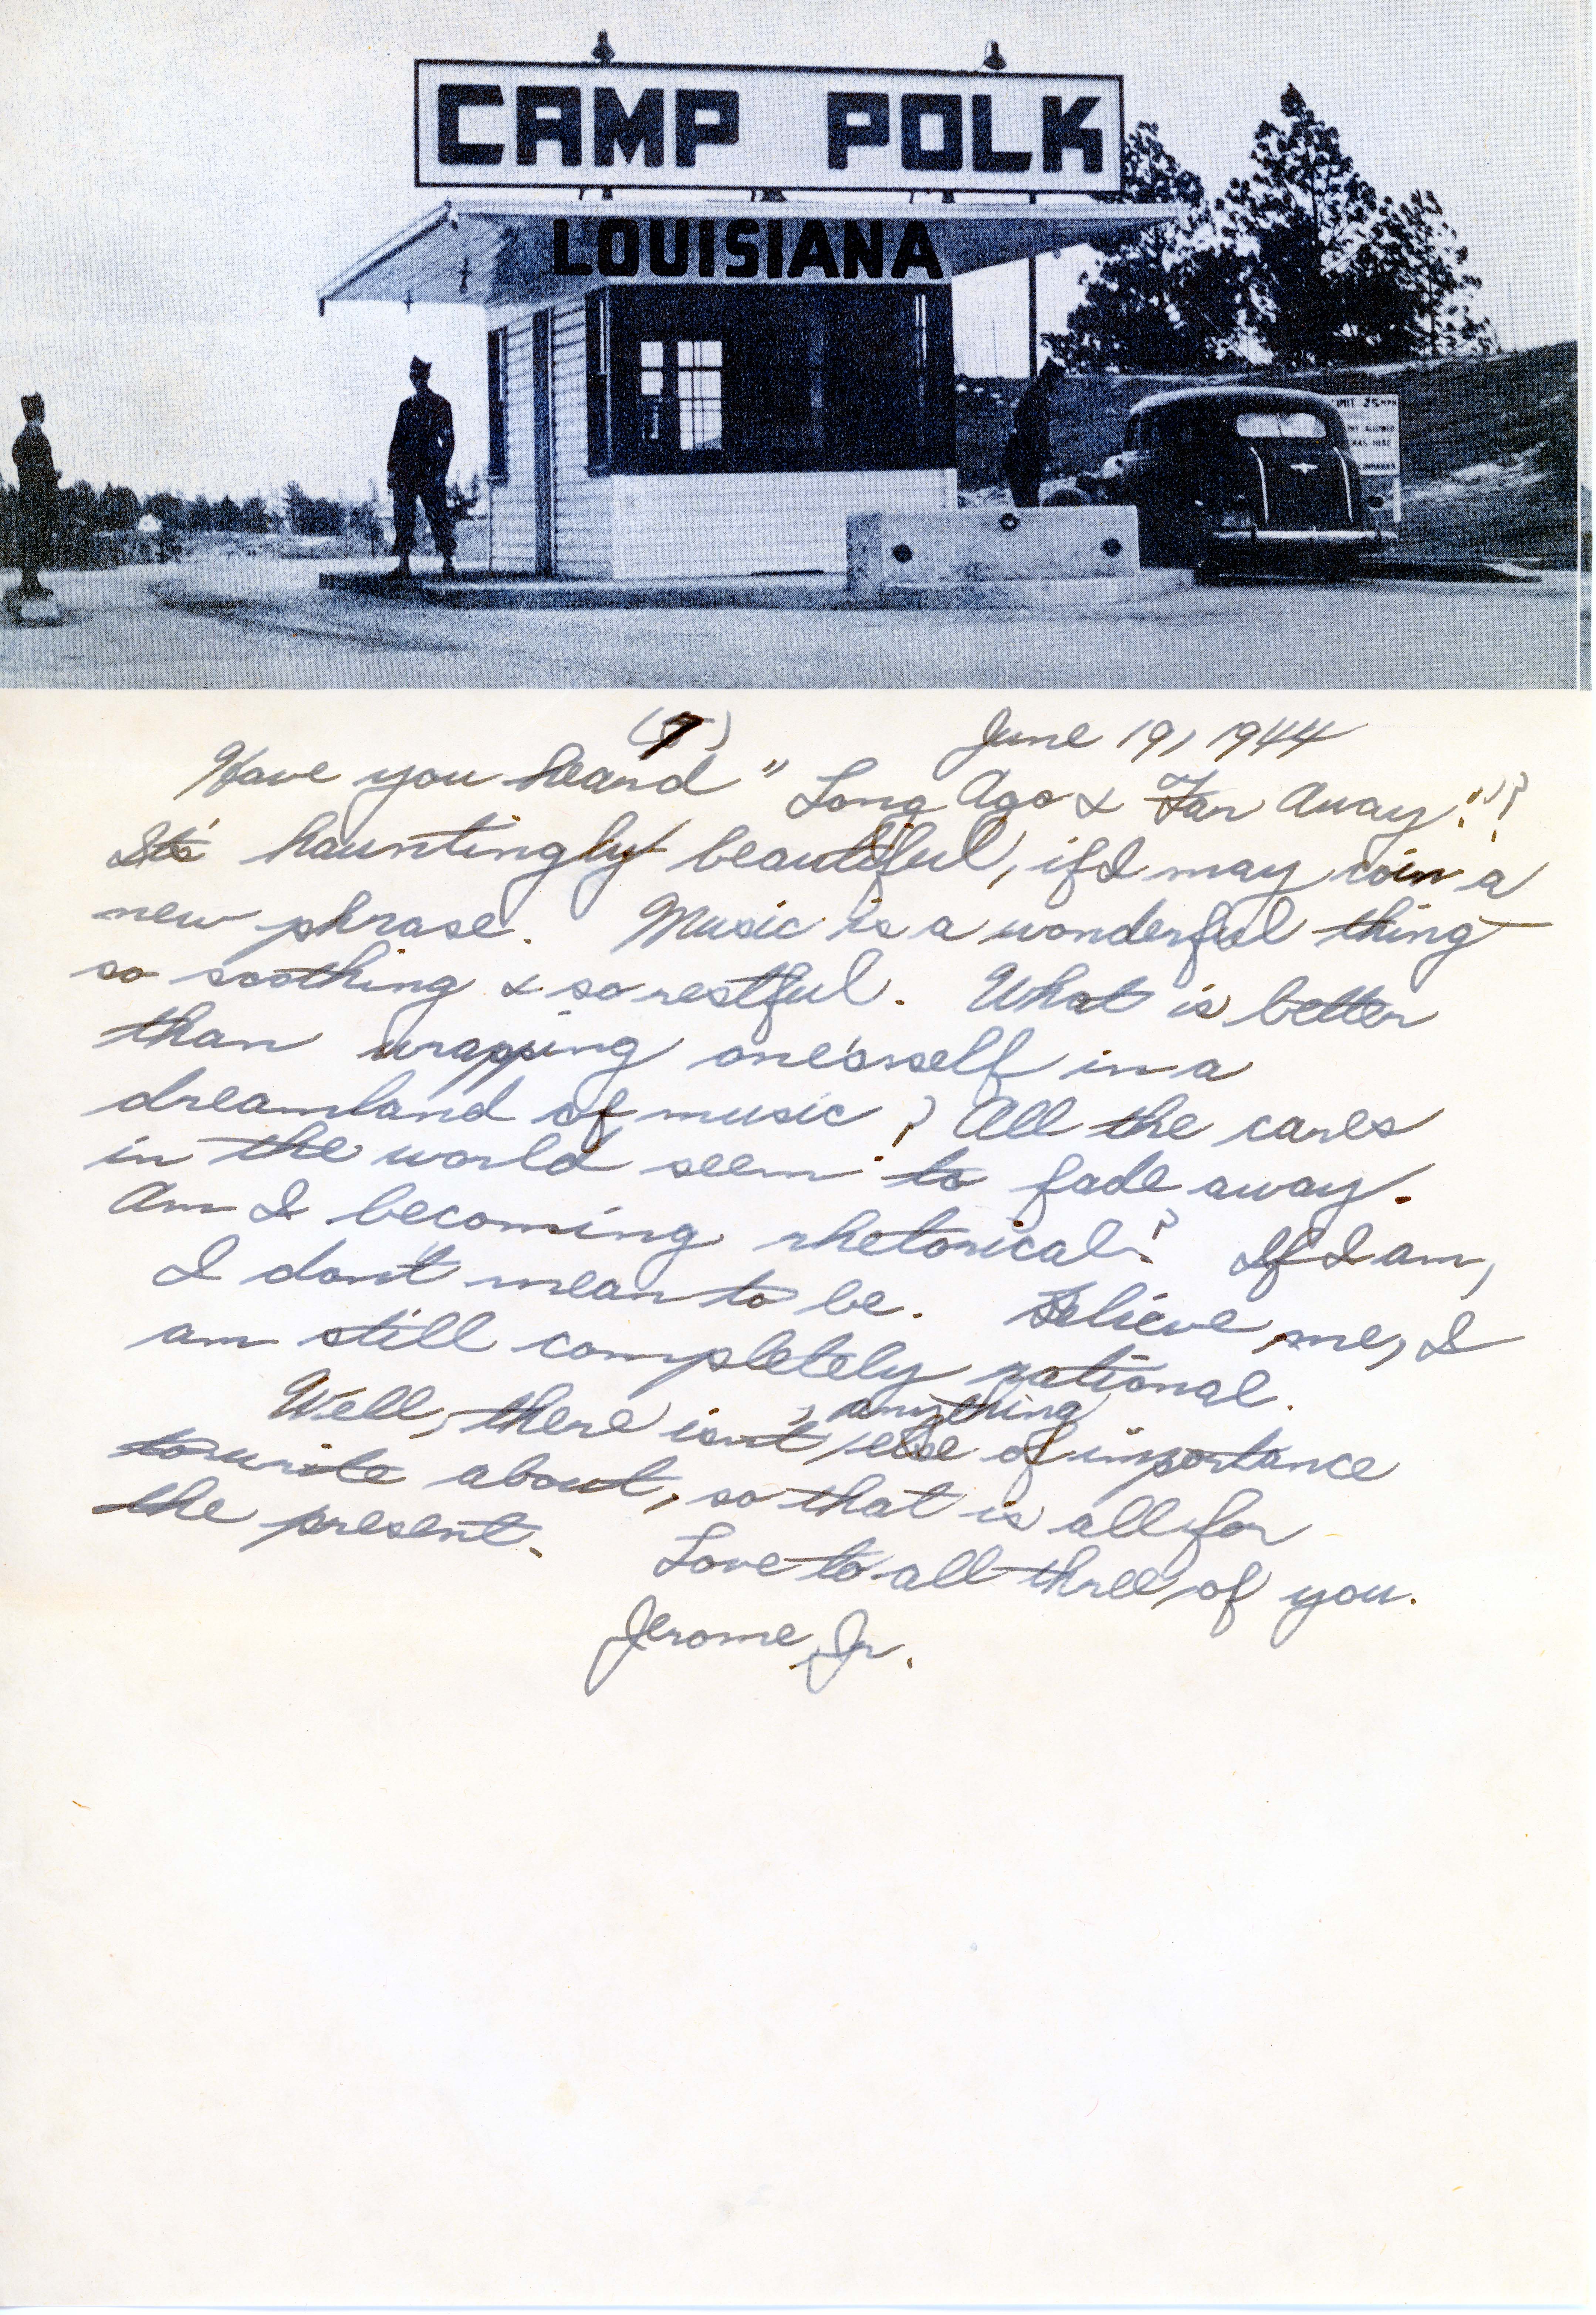 CAMP POLK
LOUISIANA
IMIT 25 MPH
ALLOWED
HERE
(7) June 19, 1944
Have you heard "Long Ago & Far Away"?
It's hauntingly beautiful, if I may coin a
new phrase. Music is a wonderful thing
so soothing & so restful. What is better
than wrapping one'sself in a
dreamland of music? All the cares
in the world seem to fade away.
Am I becoming rhetorical? If I am,
I don't mean to be. Believe me, I
am still completely rational.
Well, there isn't anything else of importance
to write about, so that is all for
the present. Love to all three of you.
Jerome, Jr.